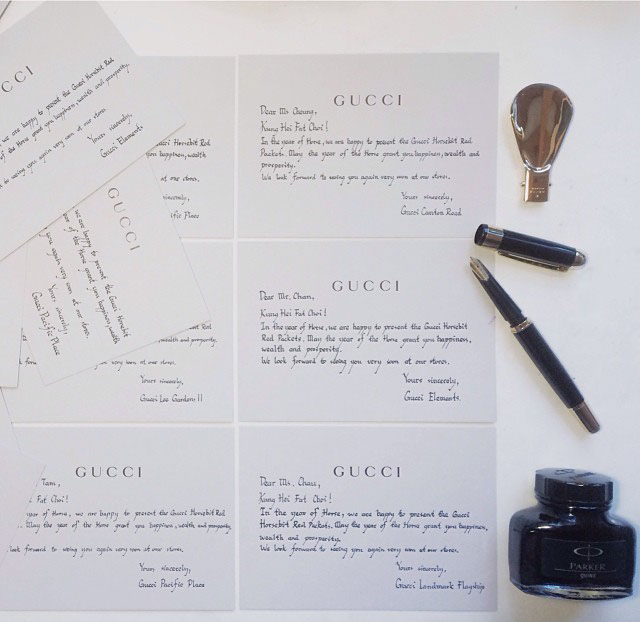 CCI
we are happy to present the Gucci Horsebit Red
of the Horse grant you happiness, wealth and prosperity.
to seeing you again very soon at our stores.
Yours sincerely,
Gucci Elements
GUCCI
we are happy to present the Gucci Horsebit
year of the Horse grant you happiness, wealth
you again very soon at our stores.
Yours sincerely,
Gucci Pacific Place
Horsebit Red
happiness, wealth
at our stores.
sincerely,
Pacific Place
GUCCI
Dear Ms Cheung,
Kung Hei Fat Choi!
In the year of Horse, we are happy to present the Gucci Horsebit Red
Packets. May the year of the Horse grant you happiness, wealth and
prosperity.
We look forward to seeing you again very soon at our stores.
Yours sincerely,
Gucci Canton Road
Red
and prosperity.
very soon at our stores.
Yours sincerely,
Gucci Lee Gardens II
GUCCI
Dear Mr. Chan,
Kung Hei Fat Choi!
In the year of Horse, we are happy to present the Gucci Horsebit
Red Packets. May the year of the Horse grant you happiness,
wealth and prosperity.
We look forward to seeing you again very soon at our stores.
Yours sincerely,
Gucci Elements
GUCCI
Tam,
Fat Choi!
year of Horse, we are happy to present the Gucci Horsebit Red
May the year of the Horse grant you happiness, wealth and prosperity.
look forward to seeing you again very soon at our stores.
Yours sincerely,
Gucci Pacific Place
GUCCI
Dear Ms. Chau,
Kung Hei Fat Choi!
In the year of Horse, we are happy to present the Gucci
Horsebit Red Packets. May the year of the Horse grant you happiness,
wealth and prosperity.
We look forward to seeing you again very soon at our stores.
Yours sincerely,
Gucci Landmark Flagship
PARKER
QUINK